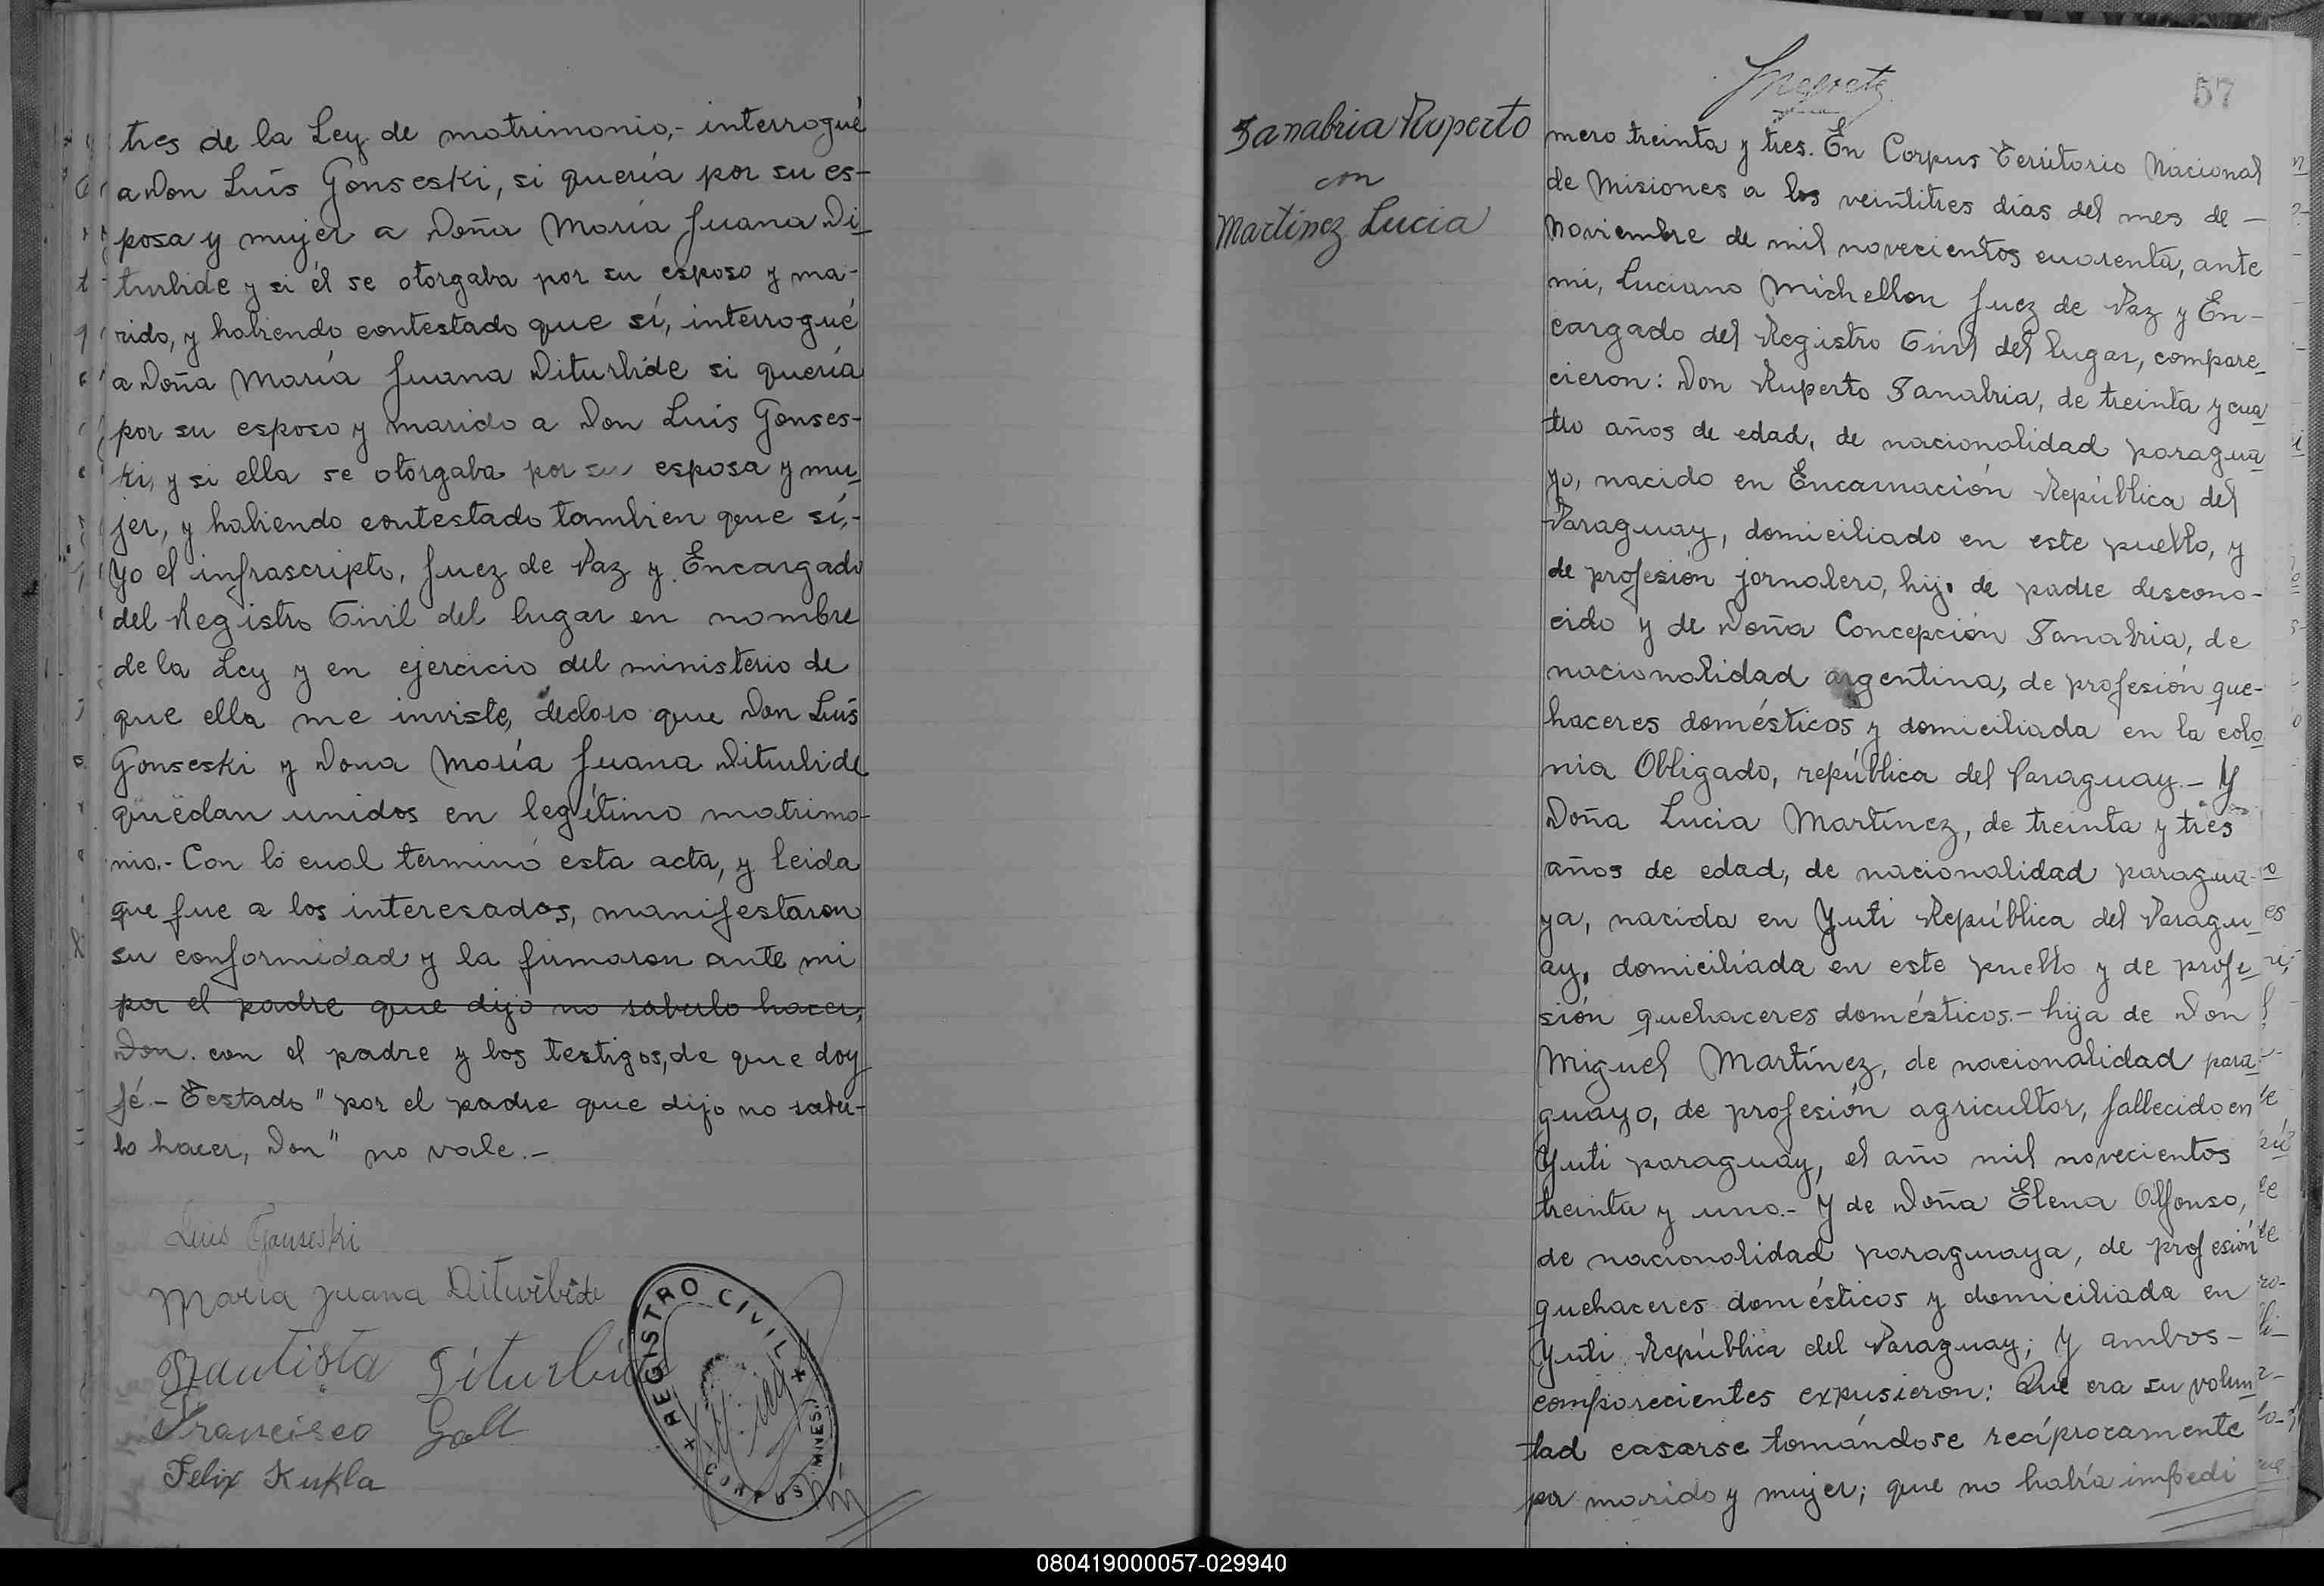 tres de la Ley de matrimonio,- interrogué
a Don Luis Gonseski, si quería por su es-
posa y mujer a Doña María Juana Di-
turbide y si él se otorgaba por su esposo y ma-
rido, y habiendo contestado que sí, interrogué
a Doña María Juana Diturbide si quería
por su esposo y marido a Don Luis Gonses-
ki, y si ella se otorgaba por su esposa y mu-
jer, y habiendo contestado tambien que sí,-
Yo el infrascripto, Juez de Paz y Encargado
del Registro Civil del lugar en nombre
de la Ley y en ejercicio del ministerio de
que ella me inviste, declaro que Don Luis
Gonseski y Dona María Juana Diturbide
quedan unidos en legítimo matrimo-
nio.- Con lo cual terminó esta acta, y leida
que fue a los interesados, manifestaron
su conformidad y la firmaron ante mi
por el padre que dijo no saberlo hacer,
Don. con el padre y los testigos, de que doy
fé.- Testado "por el padre que dijo no saber-
lo hacer, Don" no vale.-
Luis Gonseski
Maria Juana Diturbide
Bautista Diturbide
Francisco Gall
Felix Kukla
REGISTRO CIVIL
CORPUS MNES.
57
Sanabria Ruperto
con
Martinez Lucia
mero treinta y tres. En Corpus Territorio Nacional
de Misiones a los veintitres días del mes de -
Noviembre de mil novecientos cuarenta, ante
mi, Luciano Michellon Juez de Paz y En-
cargado del Registro Civil del lugar, compare-
cieron: Don Ruperto Sanabria, de treinta y cua
tro años de edad, de nacionalidad paragua
yo, nacido en Encarnación República del
Paraguay, domiciliado en este pueblo, y
de profesión jornalero, hijo de padre descono-
cido y de Doña Concepción Sanabria, de
nacionalidad argentina, de profesión que-
haceres domésticos y domiciliada en la colo
nia Obligado, república del Paraguay.- Y
Doña Lucia Martínez, de treinta y tres
años de edad, de nacionalidad paragua-
ya, nacida en Yuti República del Paragu
ay, domiciliada en este pueblo y de profe-
sión quehaceres domésticos.- hija de Don
Miguel Martínez, de nacionalidad para-
guayo, de profesión agricultor, fallecido en
Yuti paraguay, el año mil novecientos
treinta y uno.- Y de Doña Elena Alfonso,
de nacionalidad paraguaya, de profesión
quehaceres domésticos y domiciliada en
Yuti República del Paraguay; Y ambos -
comparecientes expusieron: Que era su volun
tad casarse tomándose recíprocamente
por marido y mujer; que no había impedi
080419000057-029940